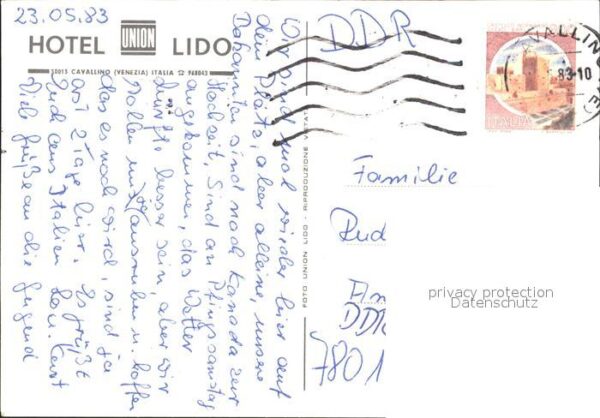 23.05.83
HOTEL UNION LIDO
30013 CAVALLINO (VENEZIA) ITALIA ☎ 968043
Wir sind mal wieder hier auf
dem Platz, aber alleine, unsere
sind nach Kanada zur
Hochzeit. Sind an Pfingsamstag
angekommen, das Wetter
dürfte besser sein, aber wir
wollen uns ausruhen u. hoffen
das es noch wird, sind ja
erst 2 Tage hier. Es grüßt
Euch aus Italien
Viele Grüße an die Jugend
FOTO UNION LIDO - RIPRODUZIONE VIETATA
DDR
CAVALLINO (VE)
83-10
ITALIA
Familie
Rud
An
DDR
7801
privacy protection
Datenschutz